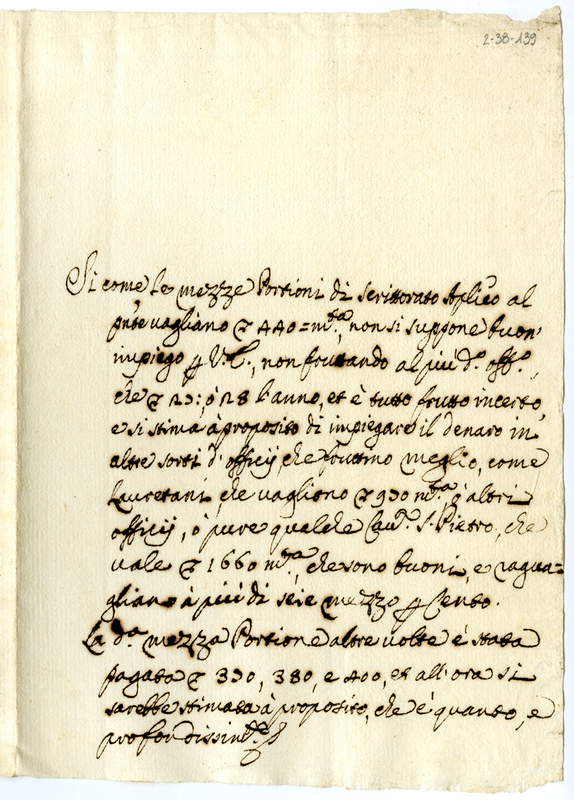 2-38-139
Si come le mezze Portioni di scrittorato Aplico al
pnte vagliano 440 = mta, non si suppone buon'
impiego p V.S., non fruttando al più do offo,
che 23: ò 28 l'anno, et è tutto frutto incerto,
e si stima à proposito di impiegare il denaro in
altre sorti d'officij, che fruttino meglio, come
Lauretani, che vagliono 930 mta ò altri
officij, ò pure qualche Cavto S. Pietro, che
vale 1660 mta, che sono buoni, e ragua=
gliano à più di seie mezzo p Cento.
La da mezza Portione altre volte è stata
pagata 330, 380, e 400, et all'ora si
sarebbe stimata à proposito, che è quanto, e